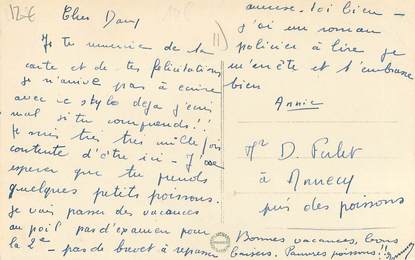 12€
Cher Dany
Je te remercie de ta
carte et de tes félicitations
je n'arrive pas à écrire
avec ce stylo déjà j'écris
mal si tu comprends!!
Je suis très très mille fois
contente d'être ici - J'ose
espérer que tu prends
quelques petits poissons.
Je vais passer des vacances
au poil pas d'examen pour
la 2e - pas de brevet à repasser
amuse-toi bien -
j'ai un roman
policier à lire je
m'arrête et t'embrasse
bien
Annie
Mr D. Perlet
à Annecy
près des poissons
Bonnes vacances, bons
baisers. Pauvres poissons!!